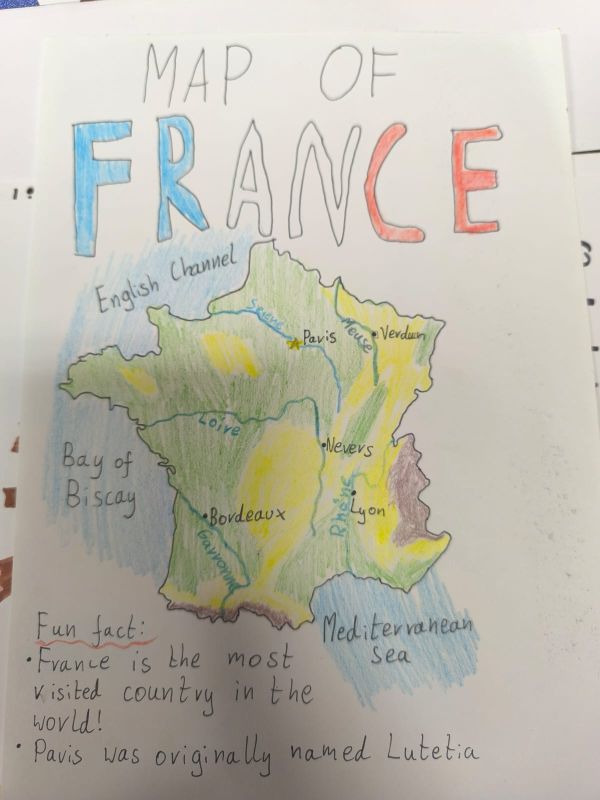 MAP OF
FRANCE
English Channel
Seine
Paris
Meuse
Verdun
Loire
Nevers
Bay of
Biscay
Bordeaux
Rhône
Lyon
Garronne
Mediterranean
Sea
Fun fact:
• France is the most
visited country in the
world!
• Paris was originally named Lutetia